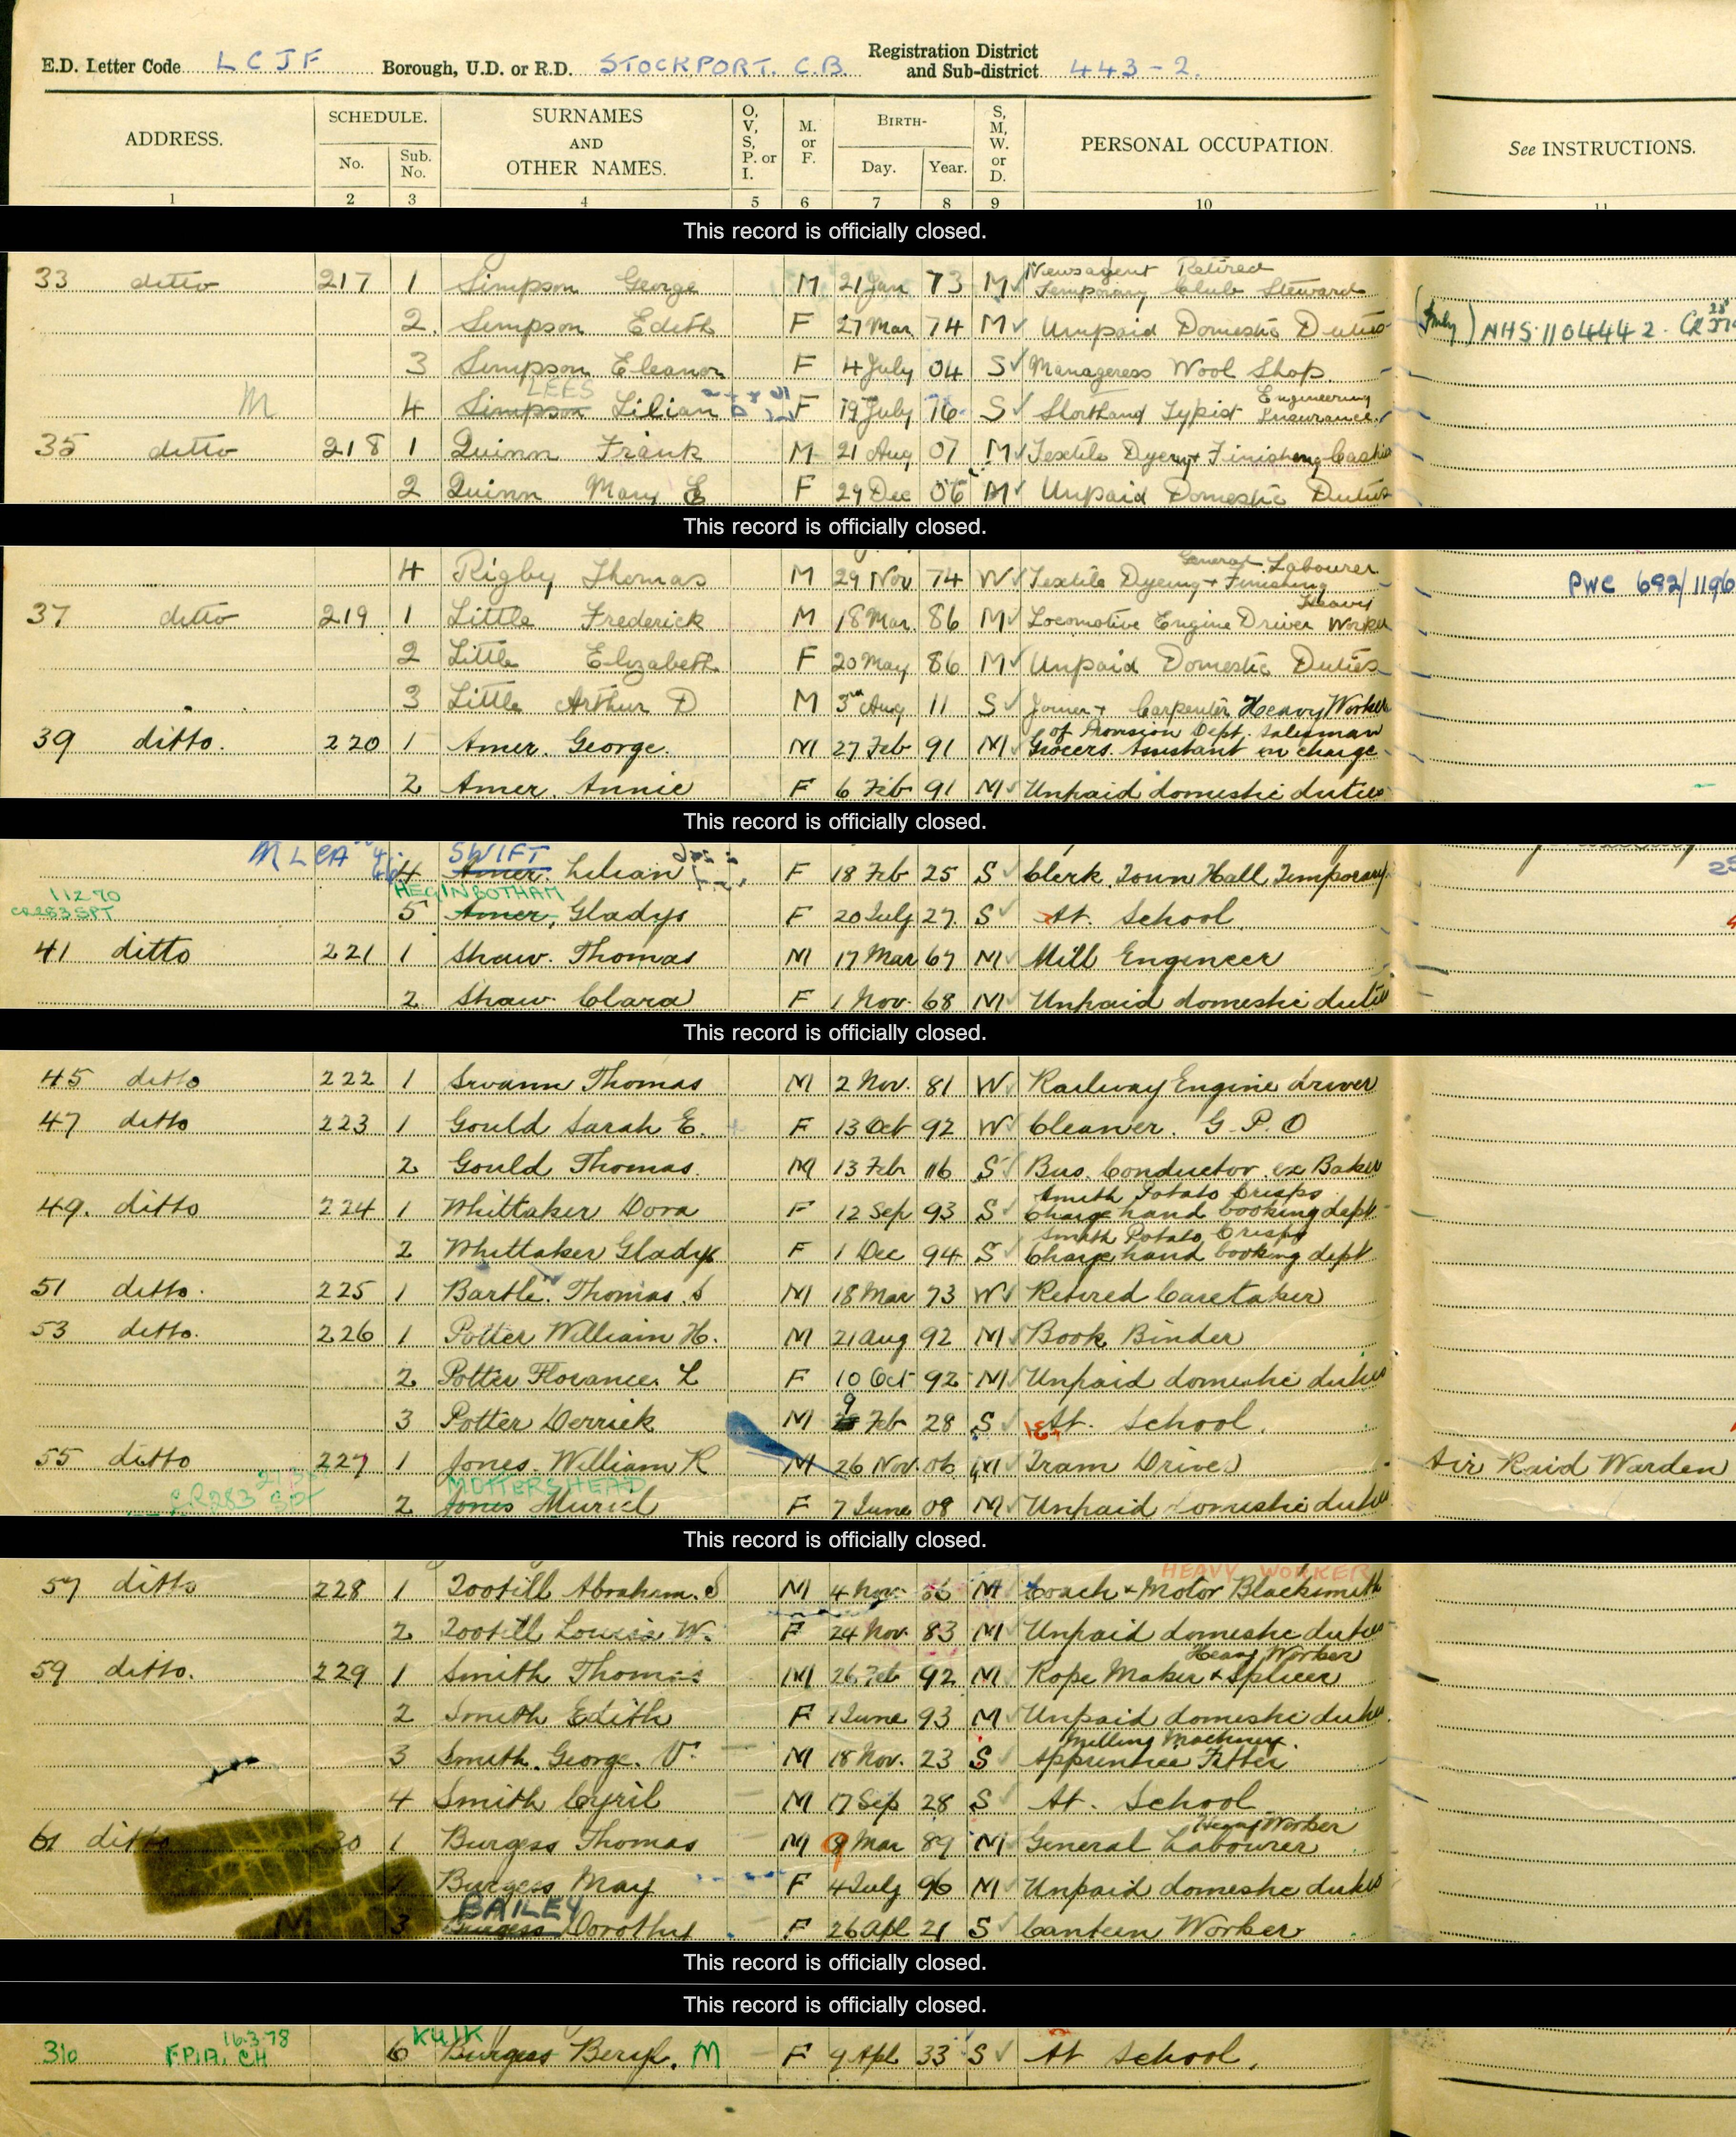 E.D. Letter Code LCJF Borough, U.D. or R.D. STOCKPORT. C.B. Registration District and Sub-district 443-2.
ADDRESS. SCHEDULE. No. Sub. No. SURNAMES AND OTHER NAMES. O, V, S, P. or I. M. or F. BIRTH- Day. Year. S, M, W. or D. PERSONAL OCCUPATION. See INSTRUCTIONS.
1 2 3 4 5 6 7 8 9 10 11
This record is officially closed.
33 ditto 217 1 Simpson George M 21 Jan 73 M Newsagent Retired Temporary Club Steward
2. Simpson Edith F 27 Mar 74 M Unpaid Domestic Duties NHS 1104442
3 Simpson Eleanor F 4 July 04 S Manageress Wool Shop.
LEES
M 4 Simpson Lilian F 19 July 16 S Shorthand Typist Engineering Insurance
35 ditto 218 1 Quinn Frank M 21 Aug 07 M Textile Dyeing + Finishing
2 Quinn Mary E F 29 Dec 06 M Unpaid Domestic Duties
This record is officially closed.
4 Rigby Thomas M 29 Nov 74 W General Labourer Textile Dyeing + Finishing PWC 692/1196
37 ditto 219 1 Little Frederick M 18 Mar 86 M Locomotive Engine Driver Heavy Worker
2 Little Elizabeth F 20 May 86 M Unpaid Domestic Duties
3 Little Arthur D M 3rd Aug 11 S Joiner + Carpenter Heavy Worker
39 ditto. 220 1 Amer. George. M 27 Feb 91 M of Provision Dept. Salesman Grocers Assistant in charge
2 Amer. Annie F 6 Feb 91 M Unpaid domestic duties
This record is officially closed.
SWIFT
M L CA 4 Amer. Lilian F 18 Feb 25 S Clerk Town Hall Temporary
HEGINBOTHAM
11270
CR283 SPT 5 Amer, Gladys F 20 July 27. S At. School.
41 ditto 221 1 Shaw. Thomas M 17 Mar 67 M Mill Engineer
2 Shaw. Clara F 1 Nov. 68 M Unpaid domestic duties
This record is officially closed.
45 ditto 222 1 Swann Thomas M 2 Nov. 81 W Railway Engine driver
47 ditto 223 1 Gould Sarah E. F 13 Oct 92 W Cleaner. G.P.O
2 Gould Thomas. M 13 Feb 16 S Bus Conductor ex Baker
49. ditto 224 1 Whittaker Dora F 12 Sep 93 S Smith Potato Crisps Charge hand booking dept
2 Whittaker Gladys F 1 Dec 94 S Smith Potato Crisps Charge hand booking dept
51 ditto. 225 1 Bartle Thomas. S M 18 Mar 73 W Retired Caretaker
53 ditto. 226 1 Potter William H. M 21 Aug 92 M Book Binder
2 Potter Florance. L F 10 Oct 92 M Unpaid domestic duties
3 Potter Derrick M 9 Feb 28 S At. School.
55 ditto 227 1 Jones. William R M 26 Nov. 06 M Tram Driver Air Raid Warden
MOTTERSHEAD
CR283 SPT 2 Jones Muriel F 7 June 08 M Unpaid domestic duties
This record is officially closed.
HEAVY WORKER
57 ditto 228 1 Tootill Abraham. S M 4 Nov. M Coach + Motor Blacksmith
2 Tootill Louisa W. F 24 Nov. 83 M Unpaid domestic duties
59 ditto. 229 1 Smith Thomas M 26 Feb 92 M Heavy Worker Rope Maker + Splicer
2 Smith Edith F 1 June 93 M Unpaid domestic duties.
3 Smith. George. V. M 18 Nov. 23 S Milling Machinery. Apprentice Fitter
4 Smith Cyril M 17 Sep 28 S At. School
61 ditto 30 1 Burgess Thomas M 9 Mar 89 M Heavy Worker General Labourer
Burgess May F 4 July 96 M Unpaid domestic duties
BAILEY
3 Burgess Dorothy F 26 Apl 21 S Canteen Worker
This record is officially closed.
This record is officially closed.
16.3.78
310 CH 6 Burgess Beryl. M F 9 Apl 33 S At School.